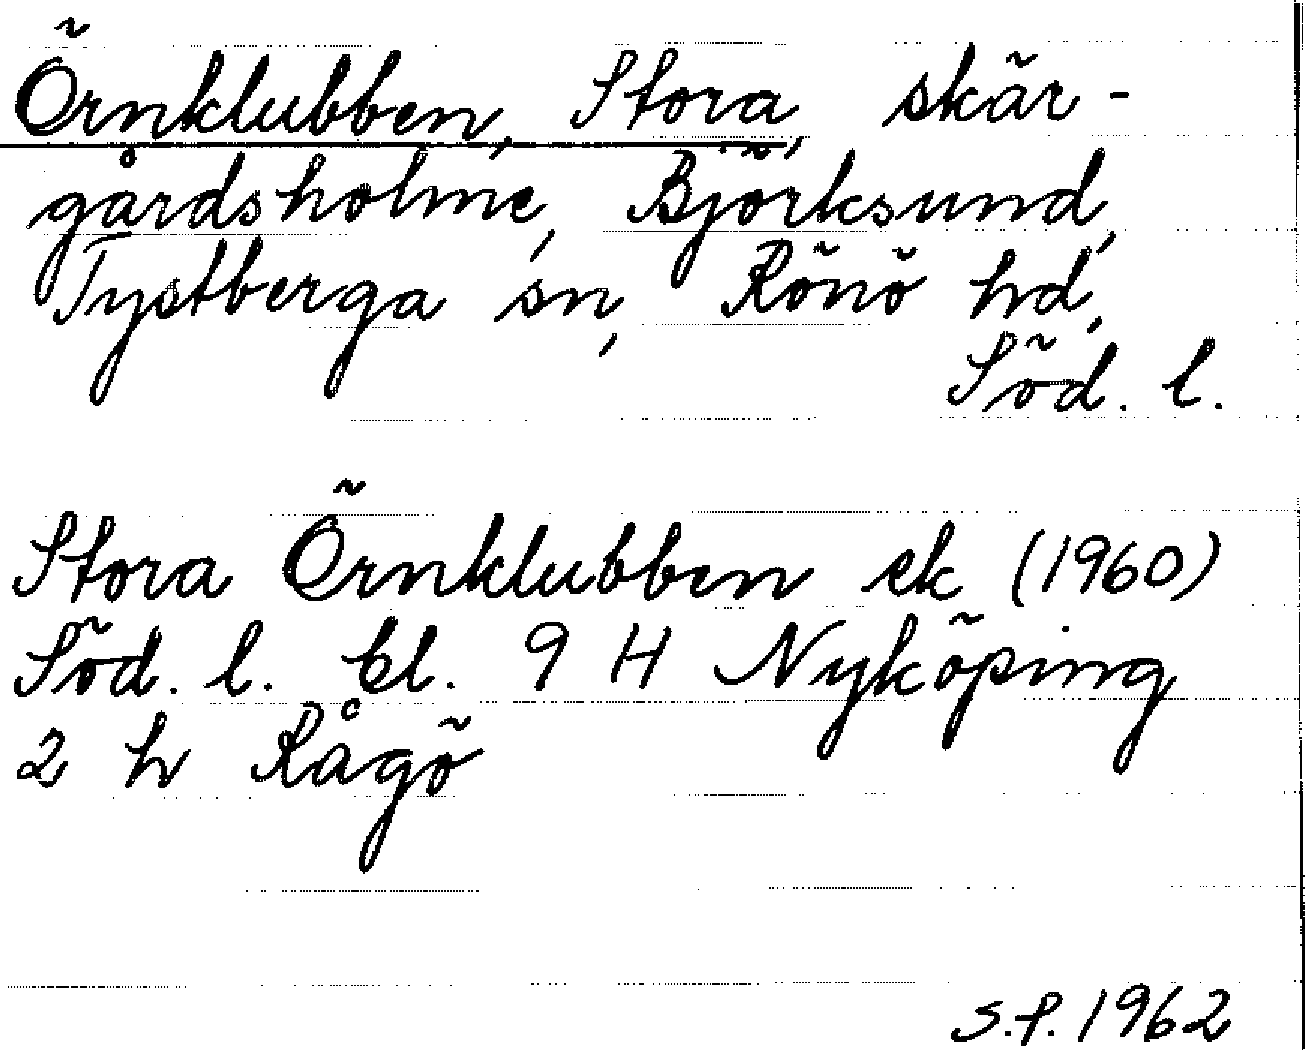 Örnklubben, Stora, skär-
gårdsholme, Björksund,
Tystberga sn, Rönö hd,
Söd. l.
Stora Örnklubben ek (1960)
Söd. l. bl. 9 H Nyköping
2 h Rågö
S.F. 1962